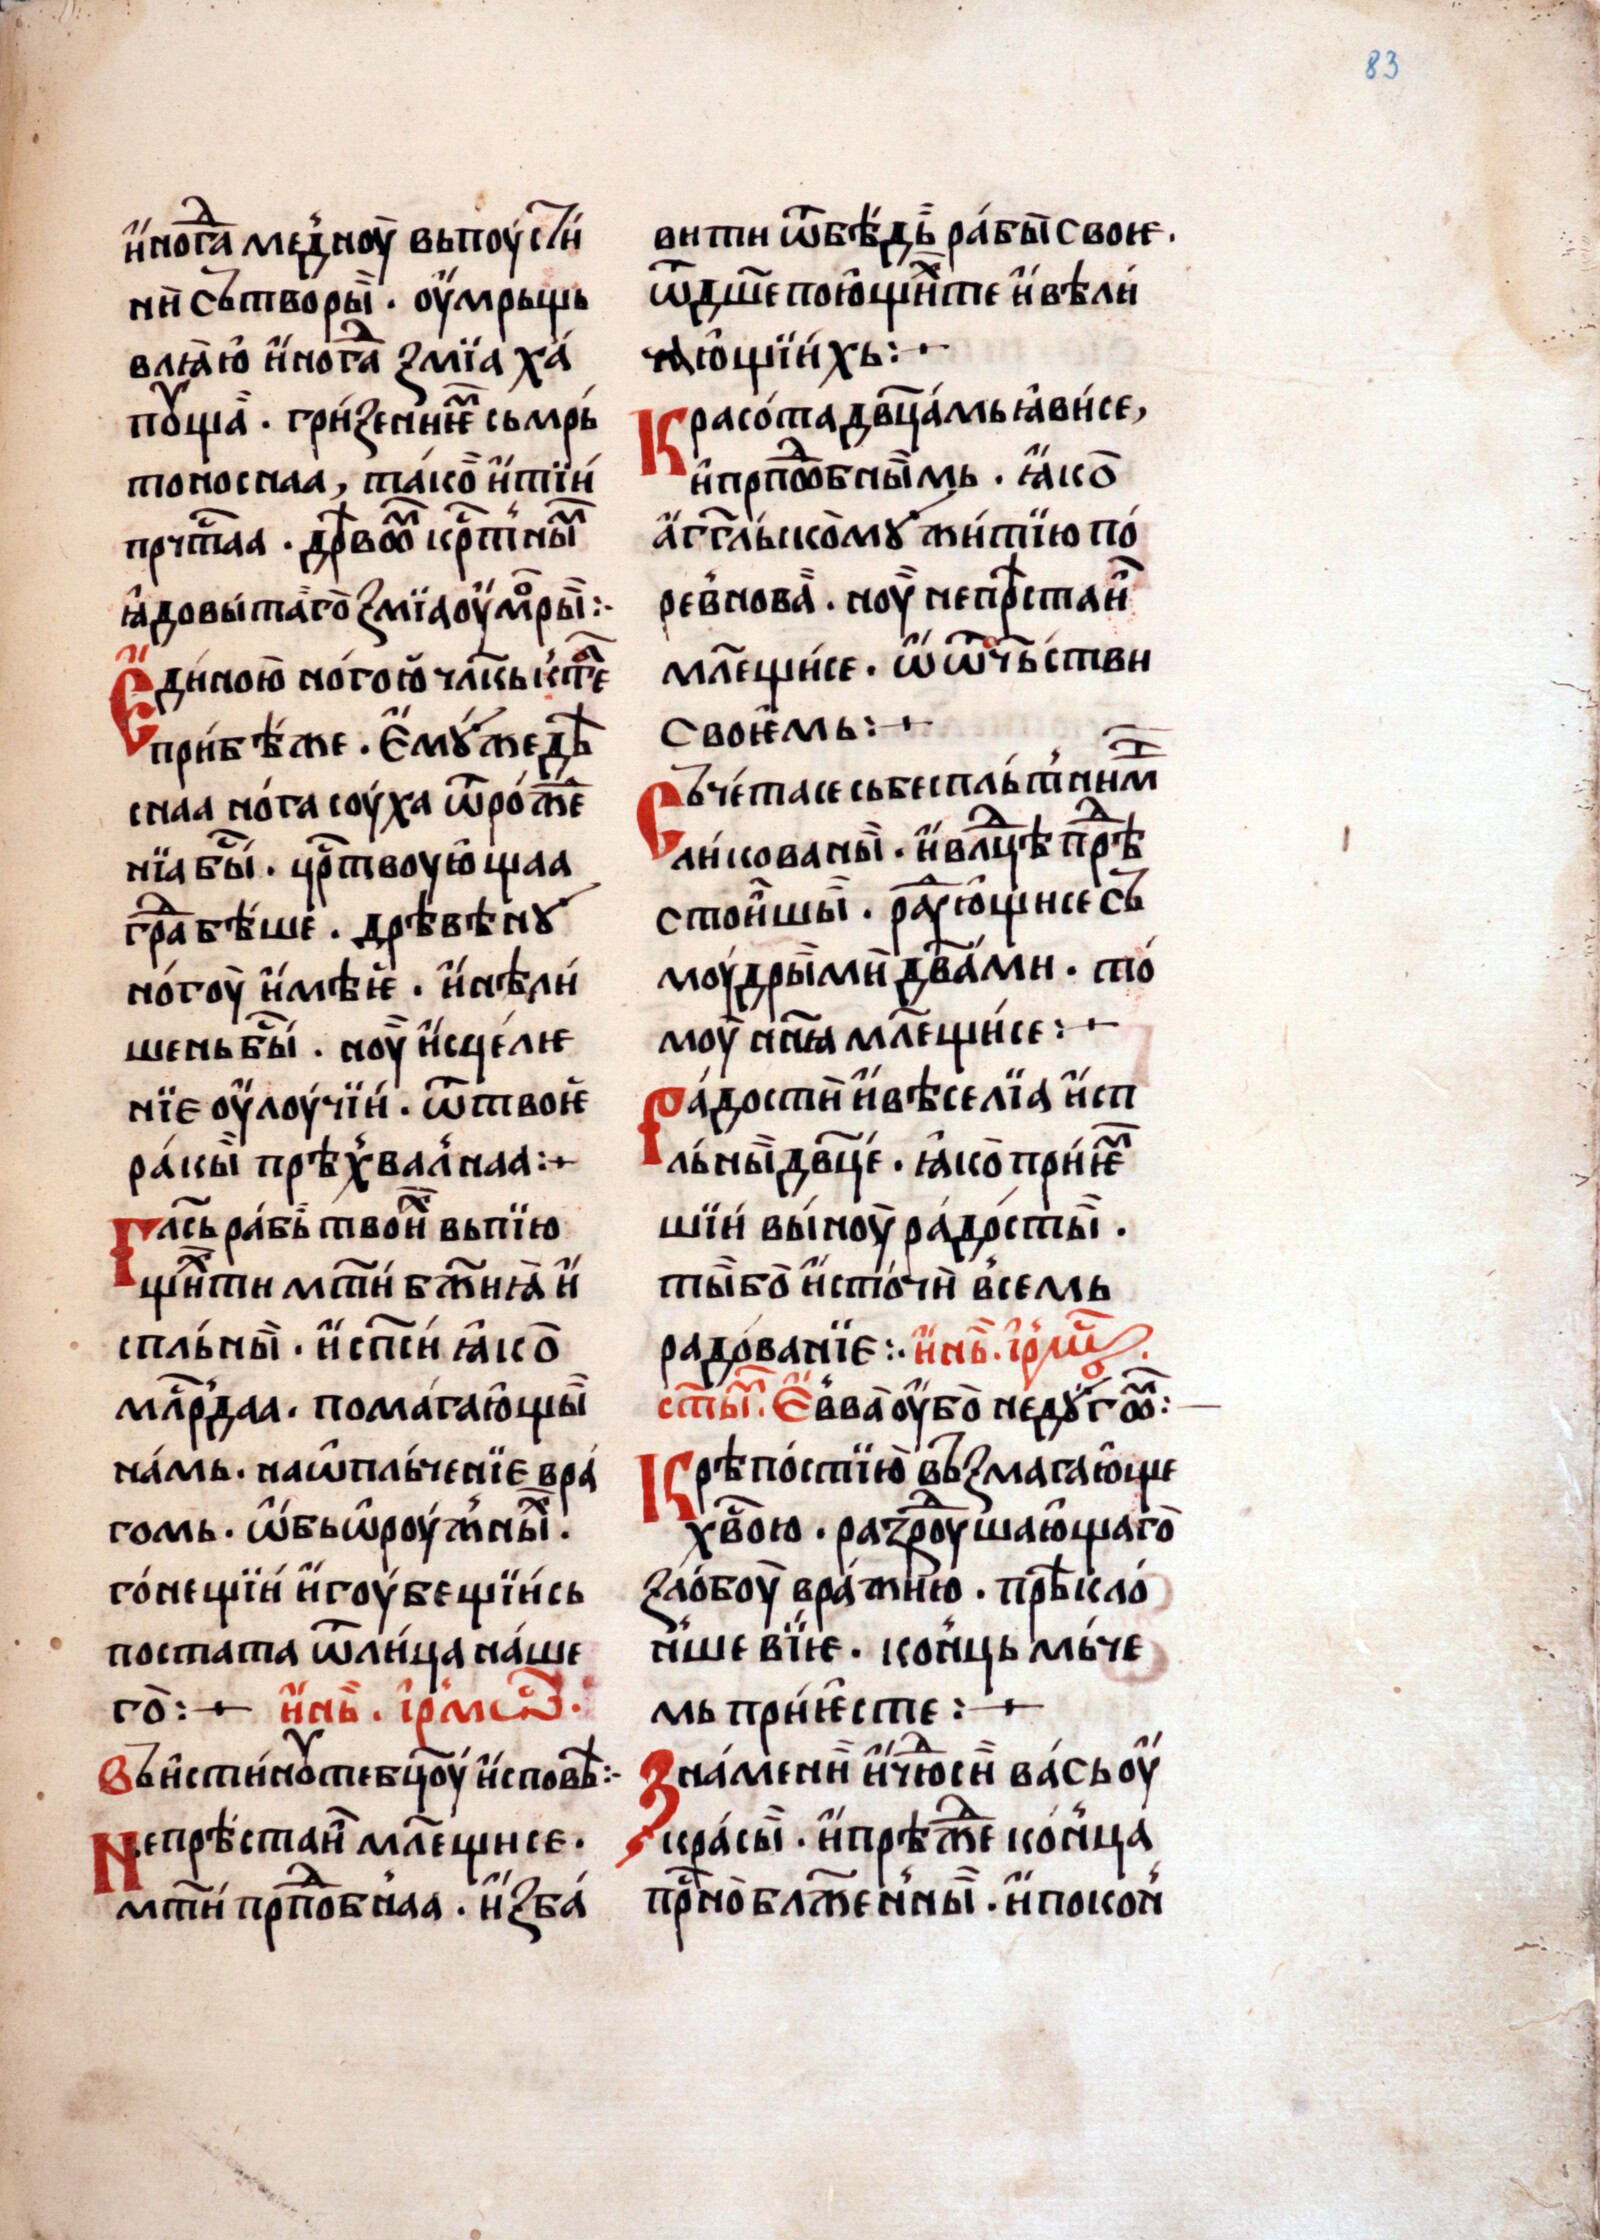 83
и҆́ногⷣа̀ ме́дноу̀ вьпоу́сты́
нѝ съ творы̏ · оу҆́мрьщь
влꙗ́ю҆ и҆́ногⷣа ꙁмїа ха́
поꙋща̏ · гри́ꙁение҄ⷨ сьмрь́
тоноснаа, та́ко̏ и҆́ тїи́
прчⷭтаа · дрѣⷡво̑ⷨ крⷭтны̏ⷨ
ꙗ҆довы́таго̏ ꙁмїа оу҆мо́ры̏:·
Е҆ди́ною̀ но́гою҆ чл҃кь к те́
прибѣ́же · е҆́мꙋ́ же дѣ
снаа но́га соу́ха ѿро́жⷣе
нїа бы́ⷭ · црⷭтвоую҆щаа
граⷣ бѣ́ше · дрѣвѣнꙋ
но́гоу̀ и҆́мѣѥ̀ · и҆́ нѣ ли́
шень бы́ⷭ · ноу̏ и҆́сцелѥ
нїе оу҆́лоу́чїи́ · ѿ твоѥ҆
ра́кы̏ прѣхва́лнаа:·
Глⷭь ра́бь̏ твои̏ⷯ вьпїю
щиⷯ ти м҃ти́ бж҃иꙗ̀ и҆́
спль́ны̏ · и҆сп҃си́ ꙗ҆ко̏
млⷭрдаа · помага́ю҆щы̏
на́мь · на ѡ҆пль́ченїе вра́
гомь · ѡ҆бьѡ҆роу́жны̏ⷯ ·
го́нещїи́ и҆́гоу́бещїи́ сь
постата ѿ ли́ца на́ше
го̏:· и҆́нь̏ · і҆рмоⷭ ·
Въ и҆́сти́ноꙋ те бцⷣоу́ и҆́сповѣ:·
Непрѣ́стаⷩ҇и мл҃ещи се ·
м҃ти́ прпⷣобнаа · и҆́ꙁба́
вити ѿ бѣ́дь̏ ра́бы̏ своѥ ·
ѿ дш҃е пою҆щиⷯ те и҆́ вѣли́
чаю҆щїи́хь:·
Красо́та дв҃ца́мь ꙗ҆ви́ се,
и҆ прпⷣоⷪбны̏мь · ꙗ҆́ко̏
а҆́гг҃льскомꙋ̏ жи́тїю по́
ре́внова̏ · ноу̏ непрѣстан̏
мл҃ещи́ се · ѡ҆́ ѿчь́стви
своѥ҆мь:·
Съче́та се сь бесплъ́тнимⷨ
ли́кованы̏ · и҆́ влⷣцѣ прⷣѣ
стои҆шы̏ · раⷣую҆щи се съ
моу́дры̏мѝ дв҃а́ми · то́
моу̏ нн҃ꙗ мл҃ещи́ се:·
Ра́достѝ и҆́ вѣселїа и҆́сп
ль́ны̏ дв҃це́ · ꙗ҆ко̏ при́ѥⷨ
шїи́ вы́ноу̀ ра́дость̏ ·
ты̏ бо̀ и҆́сточнѝ всемь
радо́ванїе:· и҆́нь̏ · і҆рмоⷭ ·
ст҃ы̏ⷨ · Е҆́вва̀ оу҆́бо̀ недꙋ́гоⷨ:·
Крѣпо́стїю̀ въꙁмага́ю҆ще
хв҃ою · раⷣꙁроуша́ю҆щаго̀
ꙁло́боу̀ вра́жию · прѣкло́
н́ше вїѥ · ко́нць мьче
мь при́ѥ҆сте:·
Зна́менѝ и҆́ чюⷣсѝ ва́сь оу҆́
кра́сы̏ · и҆́ прѣжⷣе ко́нца
прⷭно̀ бл҃же́нны̏ · и҆́ поко́н